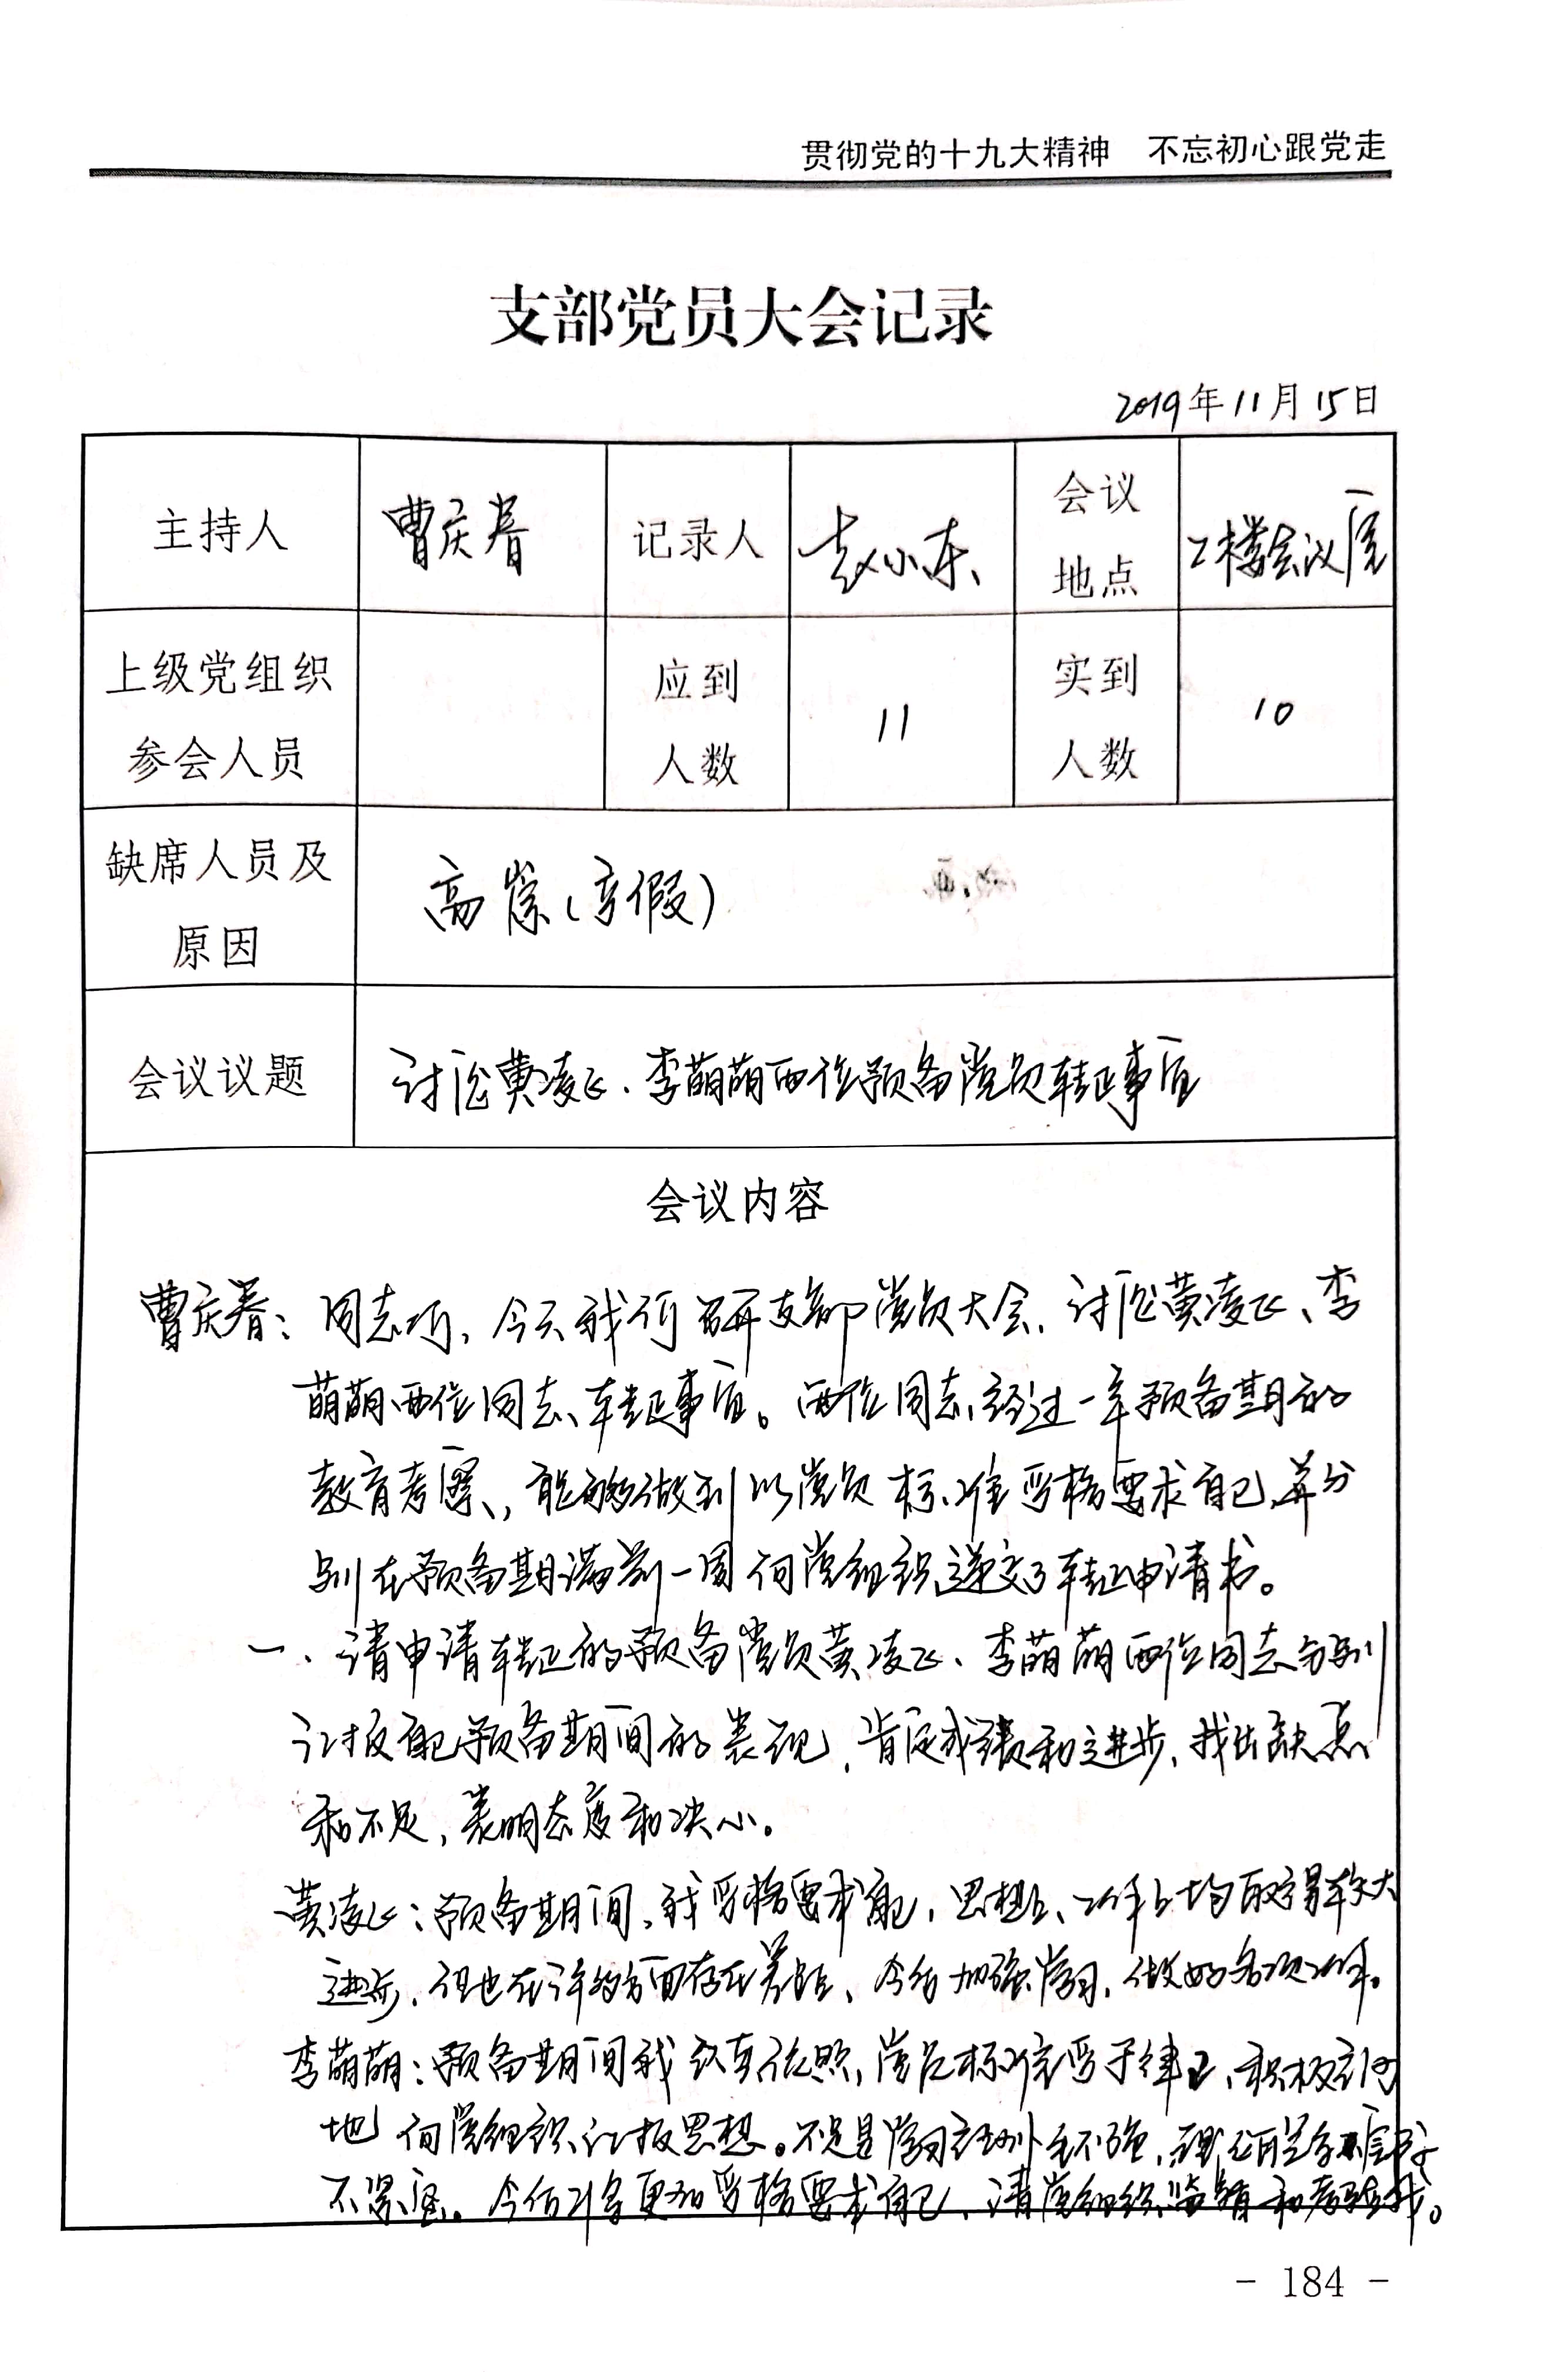 贯彻党的十九大精神 不忘初心跟党走
支部党员大会记录
2019年11月15日
主持人 曹庆春 记录人 赵小东 会议地点 2楼会议室
上级党组织参会人员 应到人数 11 实到人数 10
缺席人员及原因 高崇(事假)
会议议题 讨论黄凌飞、李萌萌两位预备党员转正事宜
会议内容
曹庆春：同志们，今天我们召开支部党员大会，讨论黄凌飞、李
萌萌两位同志转正事宜。两位同志经过一年预备期的
教育考察，能够做到以党员标准严格要求自己，并分
别在预备期满前一周向党组织递交了转正申请书。
一、请申请转正的预备党员黄凌飞、李萌萌两位同志分别
汇报自己预备期间的表现，肯定成绩和进步，找出缺点
和不足，表明态度和决心。
黄凌飞：预备期间，我严格要求自己，思想上、工作上均取得较大
进步，但也在许多方面存在差距，今后加强学习，做好各项工作。
李萌萌：预备期间我认真依照党员标准严于律己，积极主动
地向党组织汇报思想。不足是学习主动性不强，理论
不紧密。今后将更加严格要求自己，请党组织监督和考验我。
- 184 -